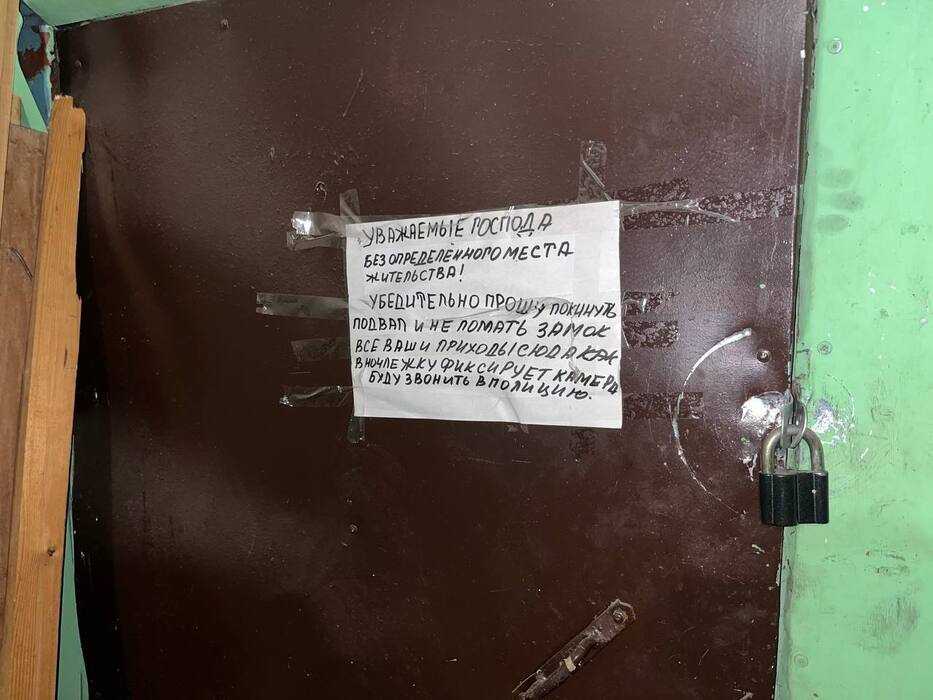 УВАЖАЕМЫЕ ГОСПОДА
БЕЗ ОПРЕДЕЛЁННОГО МЕСТА
ЖИТЕЛЬСТВА!
УБЕДИТЕЛЬНО ПРОШУ ПОКИНУТЬ
ПОДВАЛ И НЕ ЛОМАТЬ ЗАМОК
ВСЕ ВАШИ ПРИХОДЫ СЮДА КАК
В НОЧЛЕЖКУ ФИКСИРУЕТ КАМЕРА
БУДУ ЗВОНИТЬ В ПОЛИЦИЮ.